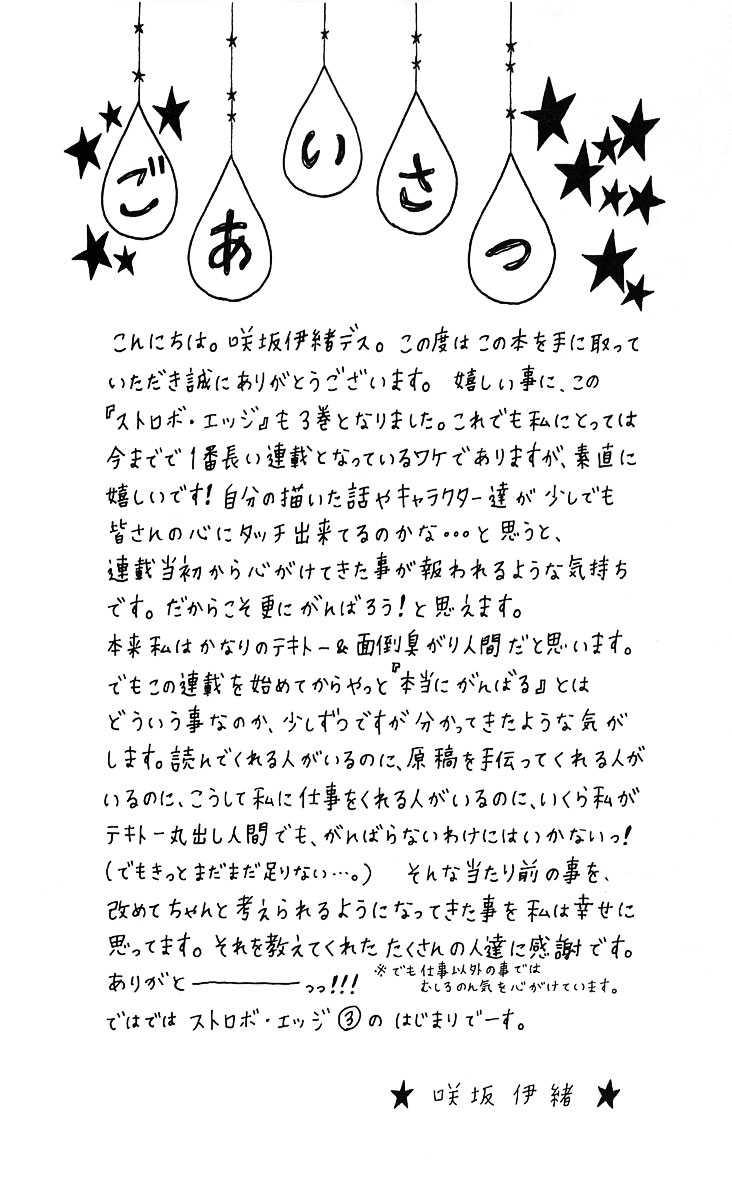 ごあいさつ
こんにちは。咲坂伊緒デス。この度はこの本を手に取って
いただき誠にありがとうございます。 嬉しい事に、この
『ストロボ・エッジ』も3巻となりました。これでも私にとっては
今までで1番長い連載となっているワケでありますが、素直に
嬉しいです!自分の描いた話やキャラクター達が少しでも
皆さんの心にタッチ出来てるのかな・・・と思うと、
連載当初から心がけてきた事が報われるような気持ち
です。だからこそ更にがんばろう!と思えます。
本来私はかなりのテキトー&面倒臭がり人間だと思います。
でもこの連載を始めてからやっと『本当にがんばる』とは
どういう事なのか、少しずつですが分かってきたような気が
します。読んでくれる人がいるのに、原稿を手伝ってくれる人が
いるのに、こうして私に仕事をくれる人がいるのに、いくら私が
テキトー丸出し人間でも、がんばらないわけにはいかないっ!
(でもきっとまだまだ足りない…。) そんな当たり前の事を、
改めてちゃんと考えられるようになってきた事を私は幸せに
思ってます。それを教えてくれたたくさんの人達に感謝です。
ありがと————っっ!!!
※でも仕事以外の事では
むしろのん気を心がけています。
ではでは ストロボ・エッジ③の はじまりでーす。
★ 咲坂 伊緒 ★